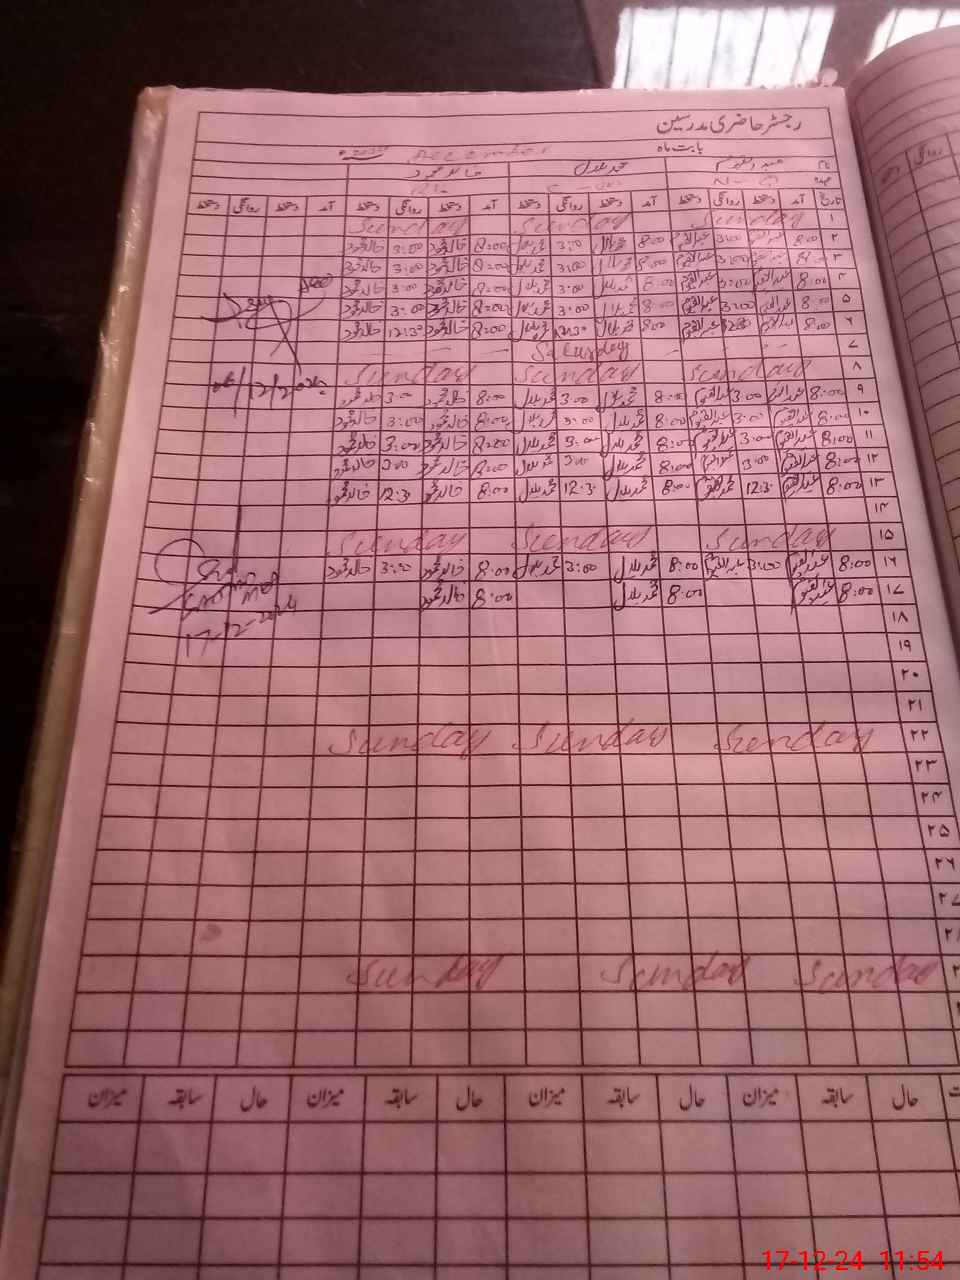 رجسٹر حاضری مدرسین
بابت ماہ December
نام عبدالقیوم محمد بلال خالد محمود
عہدہ
تاریخ آمد دستخط روانگی دستخط آمد دستخط روانگی دستخط آمد دستخط روانگی دستخط آمد دستخط روانگی دستخط
۱ Sunday Sunday Sunday
۲ 8:00 عبدالقیوم 3:00 عبدالقیوم 8:00 محمد بلال 3:00 محمد بلال 8:00 خالد محمود 3:00 خالد محمود
۳ 8:00 عبدالقیوم 3:00 عبدالقیوم 8:00 محمد بلال 3:00 محمد بلال 8:00 خالد محمود 3:00 خالد محمود
۴ 8:00 عبدالقیوم 3:00 عبدالقیوم 8:00 محمد بلال 3:00 محمد بلال 8:00 خالد محمود 3:00 خالد محمود
۵ 8:00 عبدالقیوم 3:00 عبدالقیوم 8:00 محمد بلال 3:00 محمد بلال 8:00 خالد محمود 3:00 خالد محمود
۶ 8:00 عبدالقیوم 12:30 عبدالقیوم 8:00 محمد بلال 12:30 محمد بلال 8:00 خالد محمود 12:30 خالد محمود
۷ Saturday
۸ Sunday Sunday Sunday
06/12/2024
۹ 8:00 عبدالقیوم 3:00 عبدالقیوم 8:00 محمد بلال 3:00 محمد بلال 8:00 خالد محمود 3:00 خالد محمود
۱۰ 8:00 عبدالقیوم 3:00 عبدالقیوم 8:00 محمد بلال 3:00 محمد بلال 8:00 خالد محمود 3:00 خالد محمود
۱۱ 8:00 عبدالقیوم 3:00 عبدالقیوم 8:00 محمد بلال 3:00 محمد بلال 8:00 خالد محمود 3:00 خالد محمود
۱۲ 8:00 عبدالقیوم 3:00 عبدالقیوم 8:00 محمد بلال 3:00 محمد بلال 8:00 خالد محمود 3:00 خالد محمود
۱۳ 8:00 عبدالقیوم 12:30 عبدالقیوم 8:00 محمد بلال 12:30 محمد بلال 8:00 خالد محمود 12:30 خالد محمود
۱۴
۱۵ Sunday Sunday Sunday
۱۶ 8:00 عبدالقیوم 3:00 عبدالقیوم 8:00 محمد بلال 3:00 محمد بلال 8:00 خالد محمود 3:00 خالد محمود
۱۷ 8:00 عبدالقیوم 8:00 محمد بلال 8:00 خالد محمود
17-12-2024
۱۸
۱۹
۲۰
۲۱
۲۲ Sunday Sunday Sunday
۲۳
۲۴
۲۵
۲۶
۲۷
۲۸
Sunday Sunday Sunday
حال سابقہ میزان حال سابقہ میزان حال سابقہ میزان حال سابقہ میزان
17-12-24 11:54